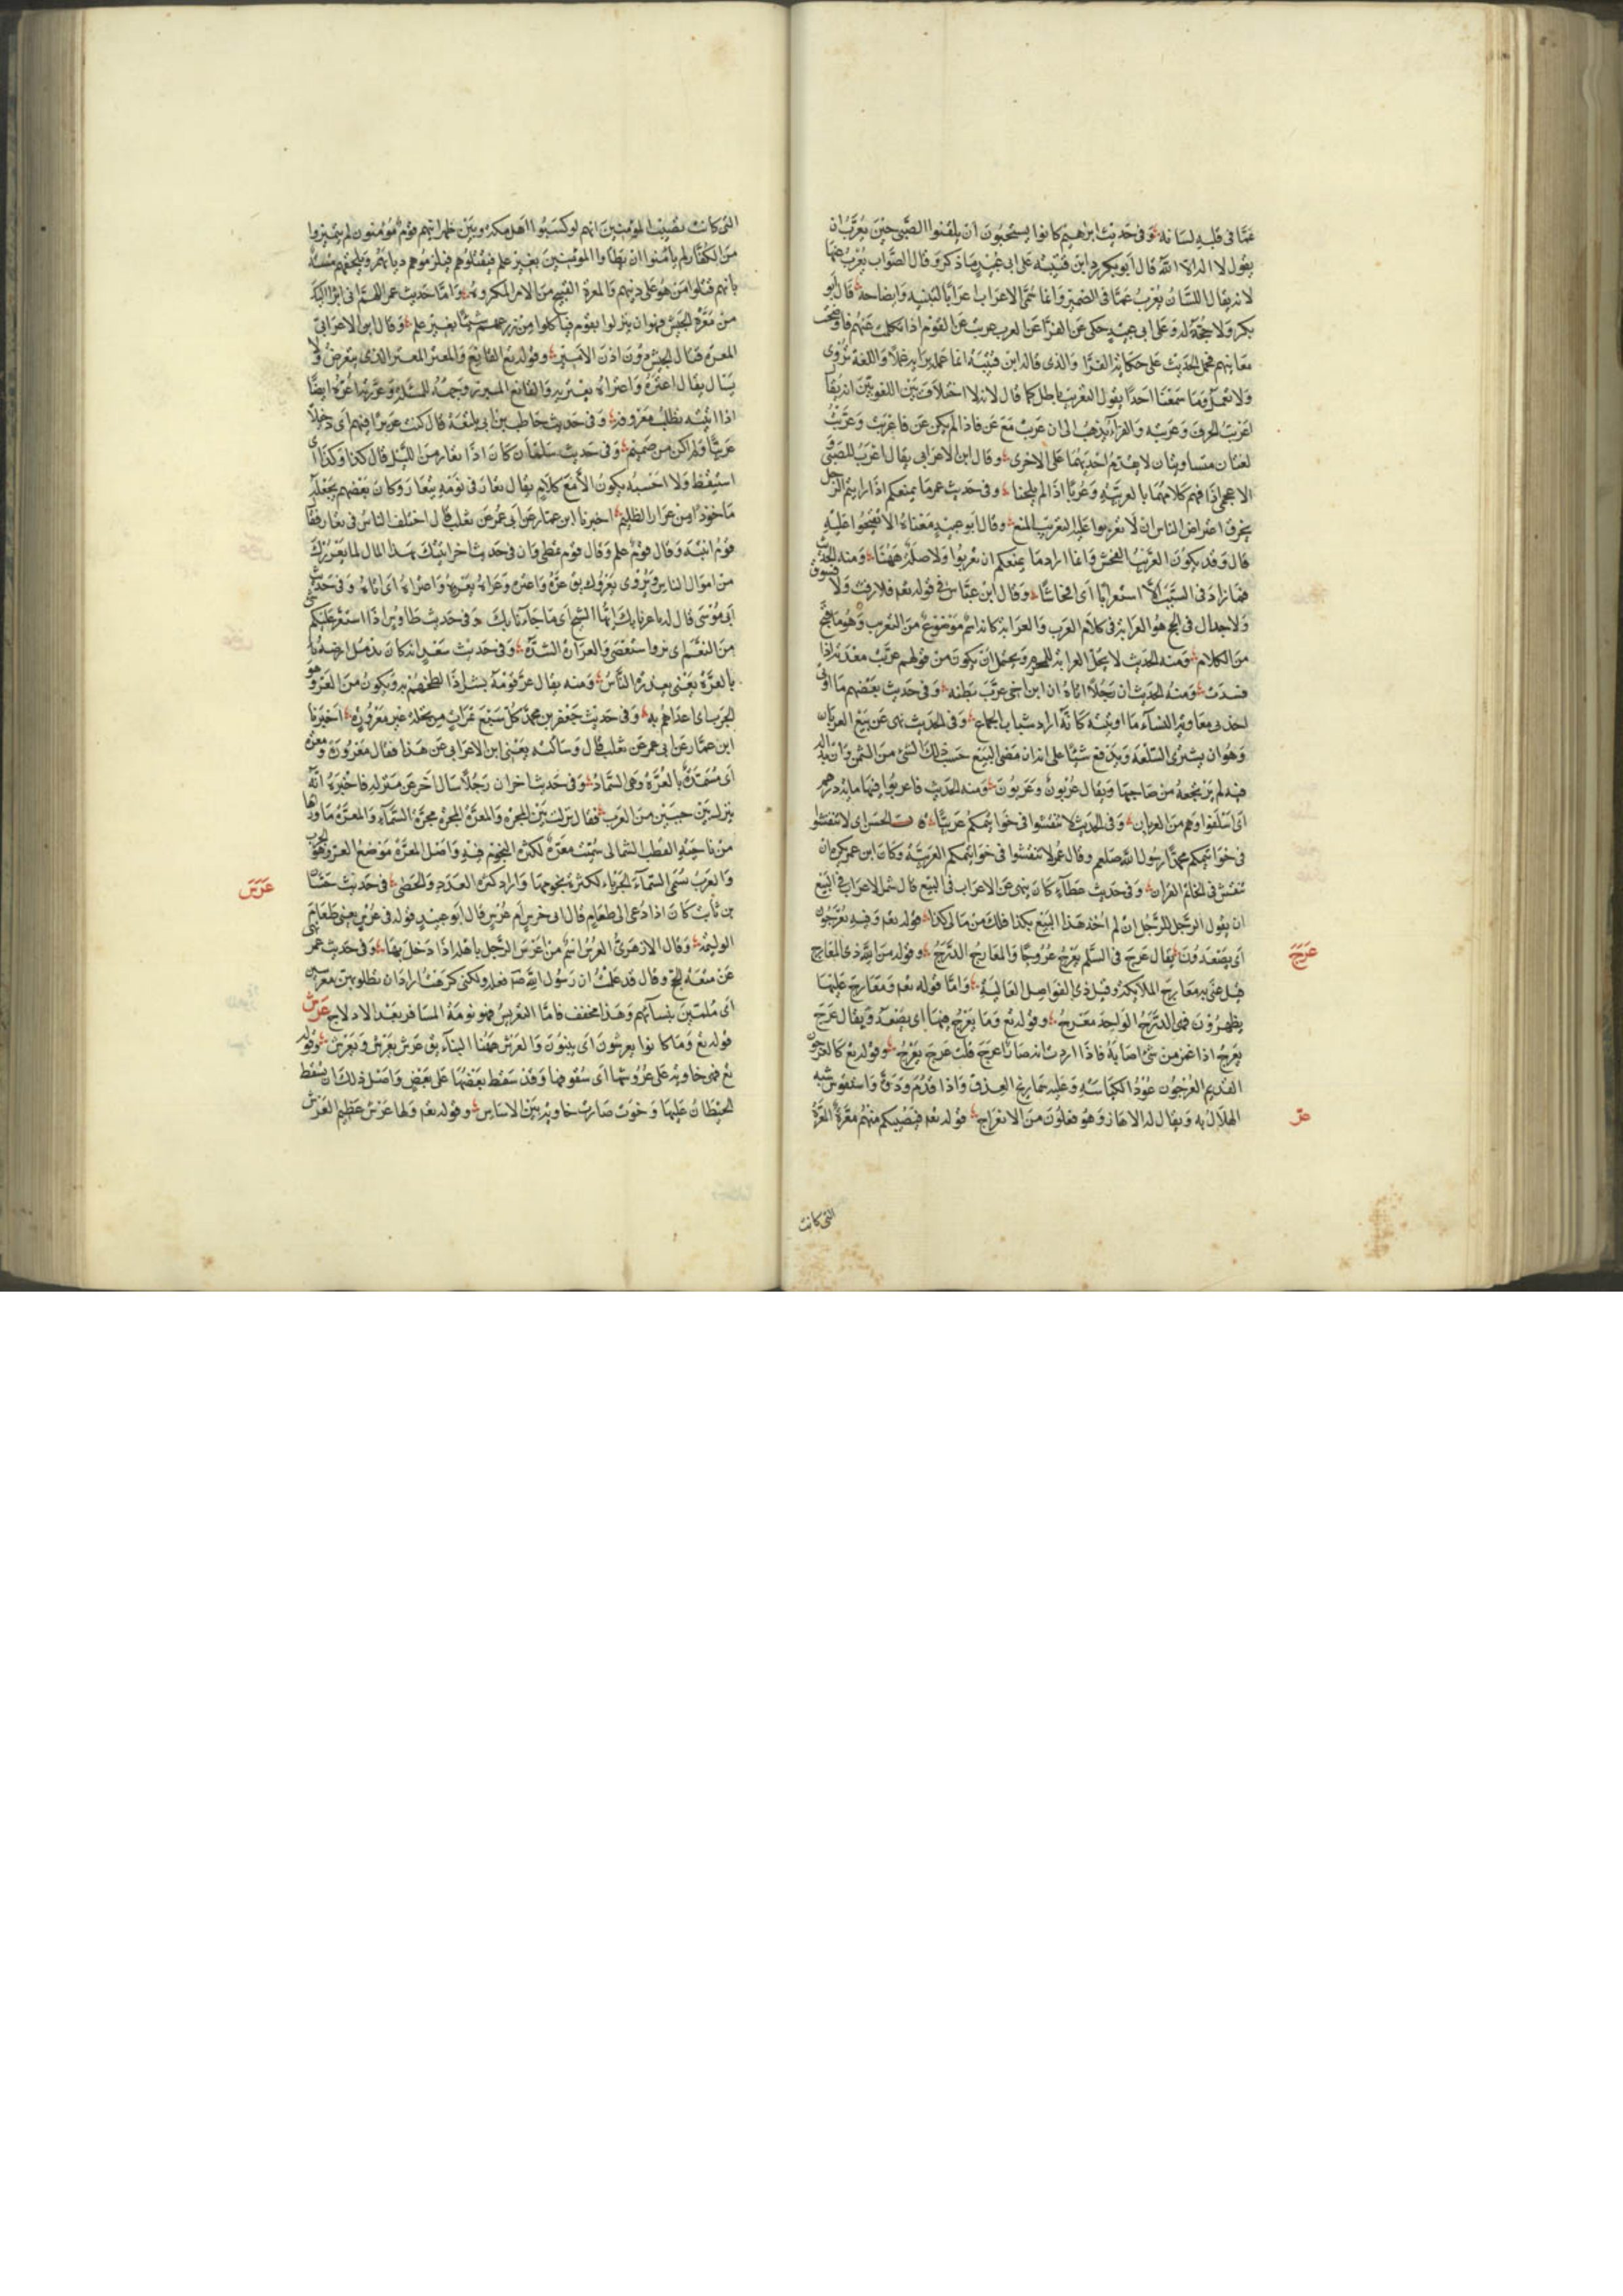 عما فى قلبه لسانه وفى حديث ابرهيم كانوا يستحبون ان يلقنوا الصبى حين يعرب ان
يقول لا اله الا الله قال ابو بكر رد ابن قتيبة على ابى عبيد ما ذكر وقال الصواب يعرب عنها
لانه يقال اللسان يعرب عما فى الضمير وانما سمى الاعراب اعرابا لتبيينه وايضاحه قال ابو
بكر ولا حجة له وعلى ابى عبيد حكى عن الفرا عن العرب عربت عن القوم اذا تكلمت عنهم
معانيهم فحمل الحديث على حكاية الفرا والذى قاله ابن قتيبة انما عمله برايه واللغة تروى
ولا تعمل وما سمعنا احدا يقول التعريب باطل كما قال لانه لا اختلاف بين اللغويين انه يقال
اعربت الحرف وعربته والفراء يذهب الى ان عربت مع عن فاذا لم يكن عن فاعربت وعربت
لغتان متساويتان لا يقدم احديهما على الاخرى وقال ابن الاعرابى يقال اعرب للصبى و
الاعجمى اذا فهم كلامهما بالعربية وعربا اذا لم يلحنا وفى حديث عمر ما يمنعكم اذا رايتم الرجل
يخرق اعراض الناس ان لا تعربوا عليه التعريب المنع وقال ابو عبيد معناه الا تقبحوا عليه
قال وقد يكون العرب الفحش وانما اراد ما يمنعكم ان تعربوا ولا صلة ههنا ومنه الحديث
فما زاد فى السبب الا استعرابا اى افحاشا وقال ابن عباس فى قوله تعلم فلا رفث ولا فسوق
ولا جدال فى الحج هو العرابة فى كلام العرب والعرابة كانه اسم موضوع من التعريب وهو ما قبح
من الكلام ومنه الحديث لا تحل العرابة للمحرم ويحتمل ان يكون من قولهم عربت معدته اذا
فسدت ومنه الحديث ان رجلا اتاه ان ابن اخى عرب بطنه وفى حديث بعضهم ما اوتى
احد من معاربة النساء ما اوتيته كانه اراد شباب الجماع وفى الحديث نهى عن بيع العربان
وهو ان يشترى السلعة ويدفع شيئا على انه ان مضى البيع حسب ذلك الشئ من الثمن وان
فيه لم يرتجعه من صاحبها ويقال عربون وعربون ومنه الحديث فاعربوا فيها ماية درهم
اى اسلفوا وهم من العربان وفى الحديث لا تنقشوا فى خواتيمكم عربيا الحسن اى لا تنقشوا
فى خواتيمكم محمد رسول الله صلعم وقال عمر لا تنقشوا فى خواتيمكم العربية وكان ابن عمر يكره ان
ينقش فى الخاتم القران وفى حديث عطاء كان ينهى عن الاعراب فى البيع قال شمر الاعراب فى البيع
ان يقول الرجل للرجل ان لم اخذ هذا البيع بكذا فلك من مالى كذا قوله تعلم وفيه يعرجون
اى يصعدون يقال عرج فى السلم يعرج عروجا والمعارج الدرج وقوله من الله ذى المعارج
عرج
قيل عنى به معارج الملايكة وقيل ذى الفواضل العالية واما قوله تعلم ومعارج عليها
يظهرون فهى الدرج الواحد معرج وقوله تع وما يعرج فيها اى يصعد ويقال عرج
يعرج اذا غمز من شئ اصابه فاذا اردت انه صار اعرج قلت عرج يعرج وقوله تع كالعرجون
القديم العرجون عود الكباسه وعليه شماريخ العذق واذا قدم ودق واستقوس شبه
الهلال به ويقال له الاهان وهو فعلون من الانعراج قوله تعلم فتصيبكم منهم معرة العرة
عر
التى كانت
التى كانت تصيب المومنين انهم لو كبسوا اهل مكة وبين ظهرانيهم قوم مومنون لم يتميزوا
من الكفار لم يامنوا ان يطاوا المومنين بغير علم فيقتلوهم فيلزموهم دياتهم وتلحقهم
بانهم قتلوا من هو على دينهم والمعرة القبيح من الامر المكروه واما حديث عمر اللهم انى ابرأ اليك
من معرة الجيش فهو ان ينزلوا بقوم فياكلوا من زرعهم شيئا بغير علم وقال ابن الاعرابى
المعرة قتال الجيش دون اذن الامير وقوله تع القانع والمعتر المعتر الذى يتعرض ولا
يسال يقال اعتره واعتراه يعتريه والقانع
اذا اتيته تطلب معروفه وفى حديث حاطب بن ابى بلتعة قال كنت عريرا فيهم اى دخيلا
غريبا ولم اكن من صميمهم وفى حديث سلمان كان اذا تعار من الليل قال كذا وكذا اى
استيقظ ولا احسبه يكون الا مع كلام يقال تعار فى نومه يتعار وكان بعضهم يجعله
ماخوذا من عرار الظليم اخبرنا ابن عمار عن ابى عمر عن ثعلب قال اختلف الناس فى تعار فقال
قوم انتبه وقال قوم علم وقال قوم تمطى وان فى حديث اخر اتيتك بهذا المال لما يعررك
من اموال الناس ويروى يعروك يق عره واعتره وعراه يعروه واعتراه اى اتاه وفى حديث
ابى موسى قال له ما عرنا بك ايها الشيخ اى ما جاءنا بك وفى حديث طاوس اذا استعر عليكم
من النعم اى ند واستعصى والعرارة الشدة وفى حديث سعد انه كان يدمل ارضه
بالعرة يعنى عذرة الناس ومنه يقال عر قومه بشر اذا لطخهم به ويكون من العر وهو
الجرب اى اعداهم به وفى حديث جعفر بن محمد كل سبع تمرات من نخلة غير معرورة اخبرنا
ابن عمار عن ابى عمر عن ثعلب قال وسالته يعنى ابن الاعرابى عن هذا فقال معرورة ومعرة
اى مسمدة بالعرة وهى السماد وفى حديث اخر ان رجلا سال اخر عن منزله فاخبره انه
ينزل بين حيين من العرب فقال نزلت بين المجرة والمعرة المجرة مجرة السماء والمعرة ما وراها
من ناحية القطب الشمالى سميت معرة لكثرة النجوم فيه واصل المعرة موضع العر وهو الجرب
والعرب تسمى السماء الجرباء لكثرة نجومها واراد كثرة العدد والحصى فى حديث حسان
عرس
بن ثابت كان اذا دعى الى طعام قال افى خرس ام عرس قال ابو عبيد قوله فى عرس يعنى طعام
الوليمة وقال الازهرى العرس اسم من اعرس الرجل باهله اذا دخل بها وفى حديث عمر نهى
عن متعة الحج وقال قد علمت ان رسول الله فعله ولكنى كرهت اراد ان يظلوا بهن معرسين
اى ملمين بنسائهم وهذا مخفف فاما التعريس فهو نومة المسافر بعد الادلاج عرش
قوله تع وما كانوا يعرشون اى يبنون والعرش ههنا البناء يق عرش يعرش ويعرش وقوله
تع فهى خاوية على عروشها اى سقوفها وقد سقط بعضها على بعض واصل ذلك ان يسقط
الحيطان عليها وخوت صارت خاوية بين الاساس وقوله تعلم ولها عرش عظيم العرش